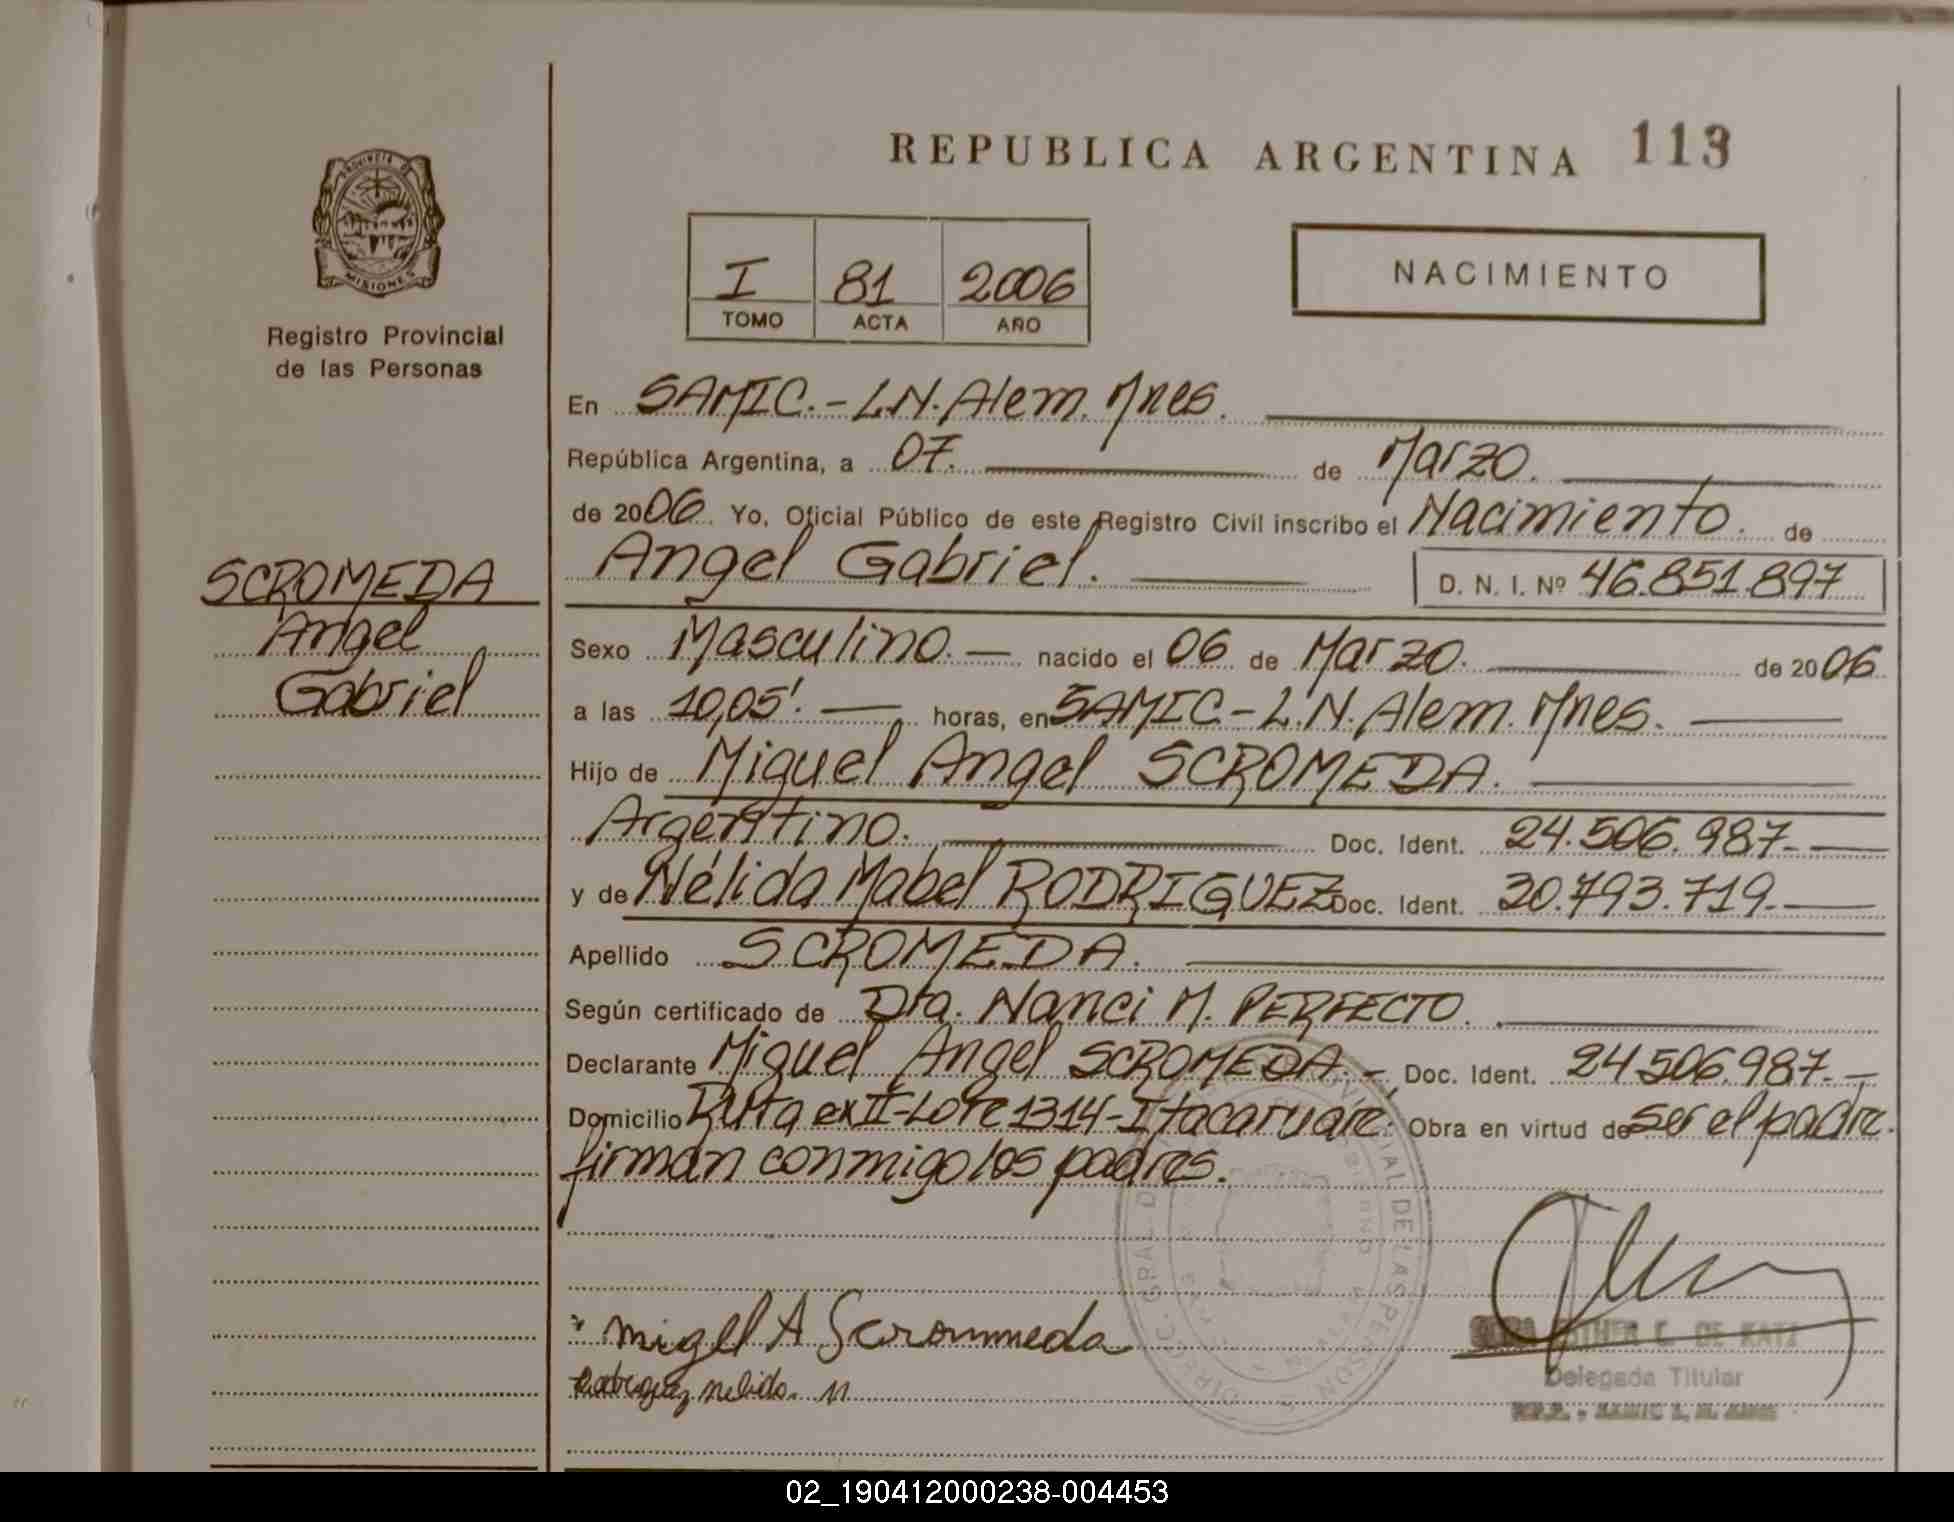 REPUBLICA ARGENTINA 113
PROVINCIA DE
MISIONES
Registro Provincial
de las Personas
I 81 2006
TOMO ACTA AÑO
NACIMIENTO
SCROMEDA
Angel
Gabriel
En SAMIC.-L.N. Alem. Mnes.
República Argentina, a 07. de Marzo.
de 2006. Yo, Oficial Público de este Registro Civil inscribo el Nacimiento. de
Angel Gabriel. D. N. I. Nº 46.851.897
Sexo Masculino. nacido el 06 de Marzo. de 2006
a las 10,05'. horas, en SAMIC-L.N. Alem. Mnes.
Hijo de Miguel Angel SCROMEDA.
Argentino. Doc. Ident. 24.506.987.
y de Nélida Mabel RODRIGUEZ Doc. Ident. 30.793.719.
Apellido SCROMEDA.
Según certificado de Dra. Nanci M. PERFECTO.
Declarante Miguel Angel SCROMEDA.- Doc. Ident. 24506.987.-
Domicilio Ruta ex II-Lote 1314-Itacaruare. Obra en virtud de ser el padre.
firman conmigo los padres.
migel A Scrommeda
Rodriguez nelida. M
ESTHER C. DE KATZ
Delegada Titular
02_190412000238-004453